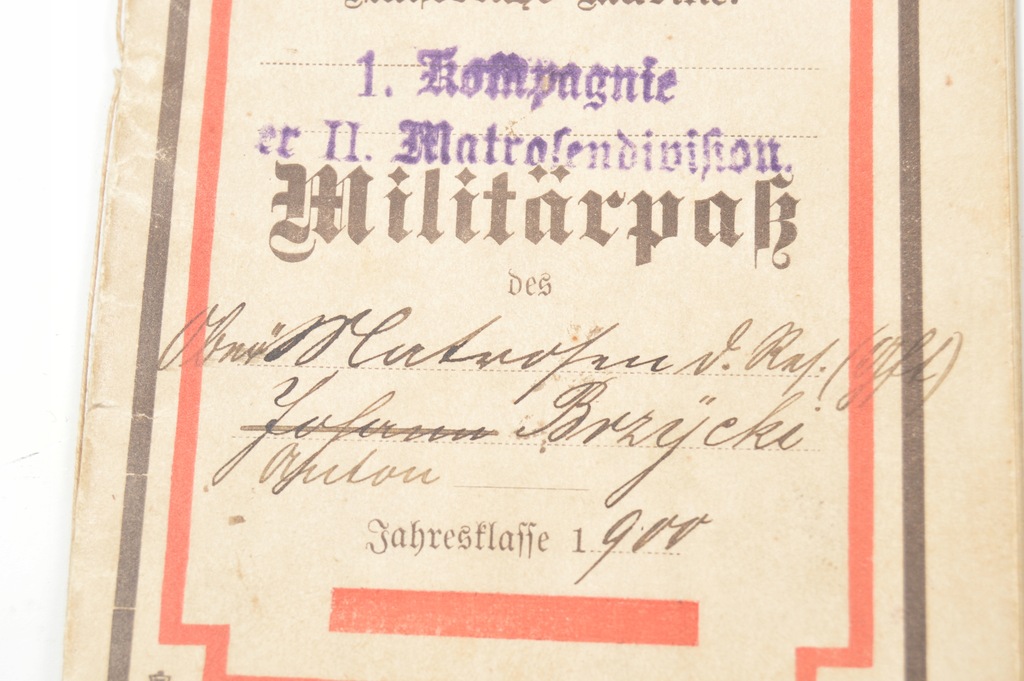 Kaiserliche Marine.
1. Kompagnie
er II. Matrosendivision.
Militärpaß
des
Ober Matrosen d. Res.
Johann Brzÿcki
Anton
Jahresklasse 1900